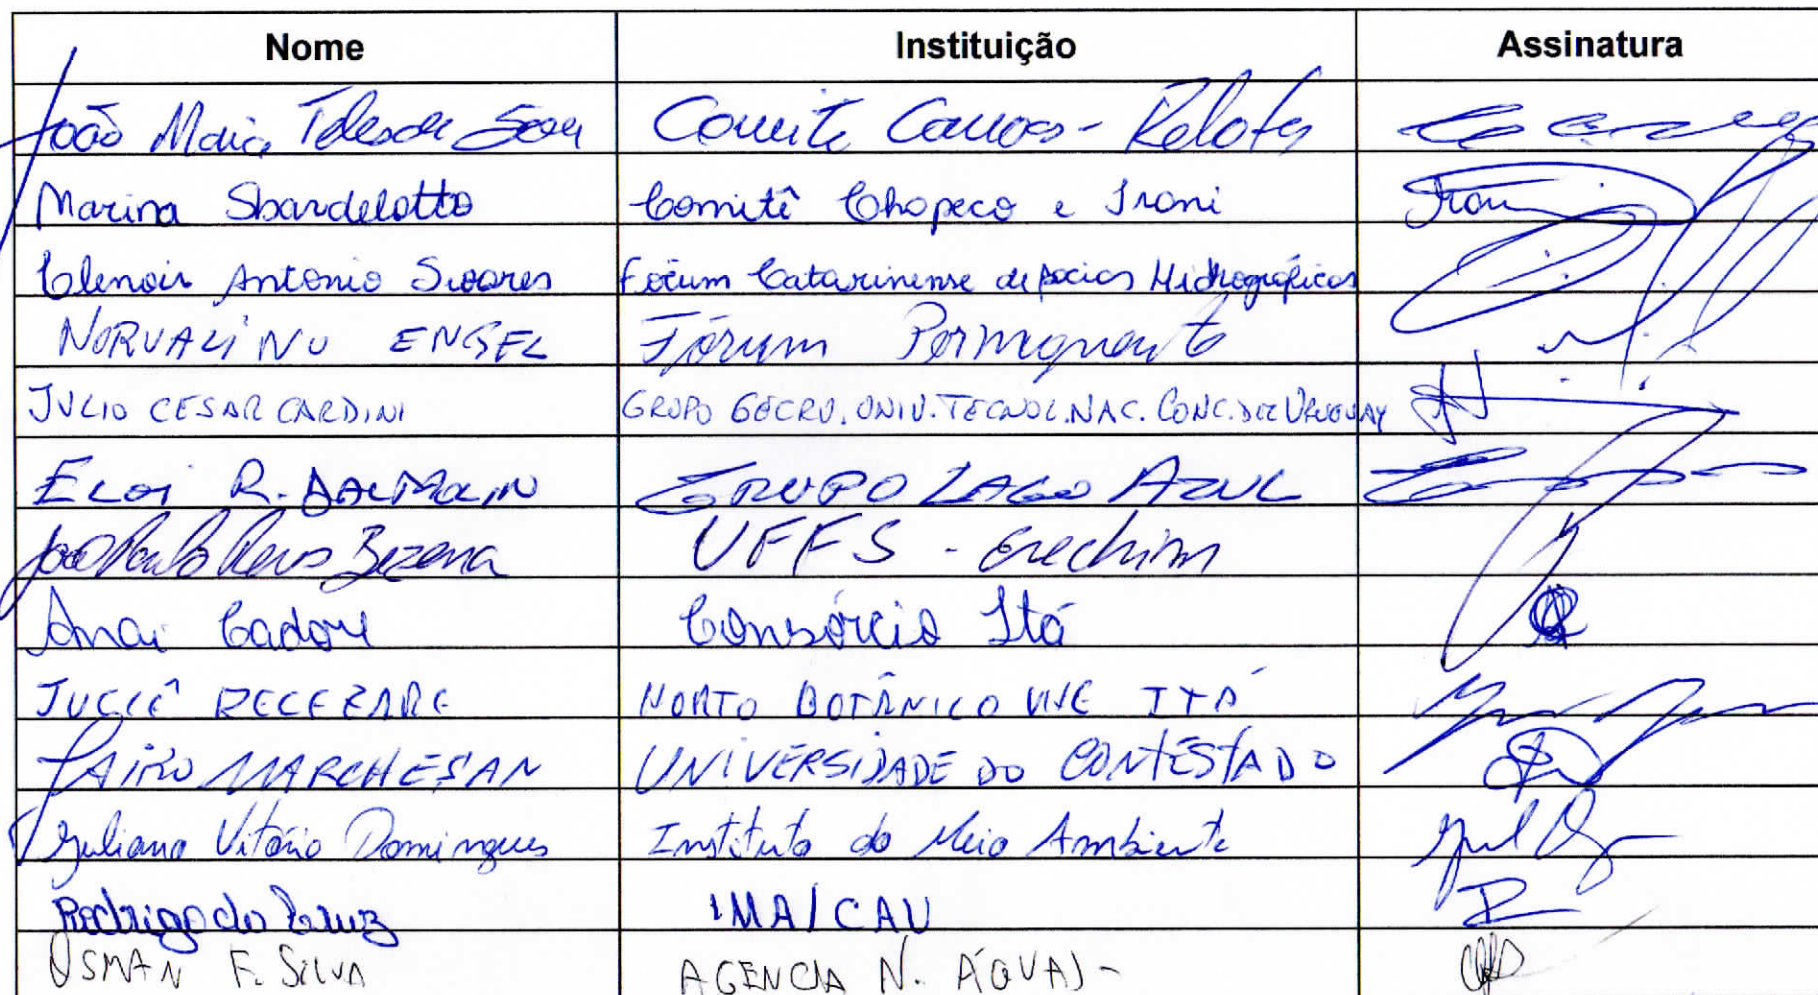 Nome Instituição Assinatura
João Maria Teles de Comite Canoas - Pelotas
Marina Sbardelotto Comitê Chapecó e Irani Irani
Clenoir Antonio Soares Fórum Catarinense de Bacias Hidrográficas
NORVALINO ENGEL Fórum Permanente
JULIO CESAR CARDINI GRUPO GECRU. UNIV. TECNOL. NAC. CONC. DEL URUGUAY
ELOI R. DALMOLIN GRUPO LAGO AZUL
João Paulo Bezerra UFFS - Erechim
Anai Cadore Consórcio Itá
HORTO BOTÂNICO VIVE ITÁ
JAIRO MARCHESAN UNIVERSIDADE DO CONTESTADO
Juliano Vitório Domingues Instituto do Meio Ambiente
Rodrigo da Cruz IMA/CAV
OSMAN F. SILVA AGENCIA N. ÁGUAS -